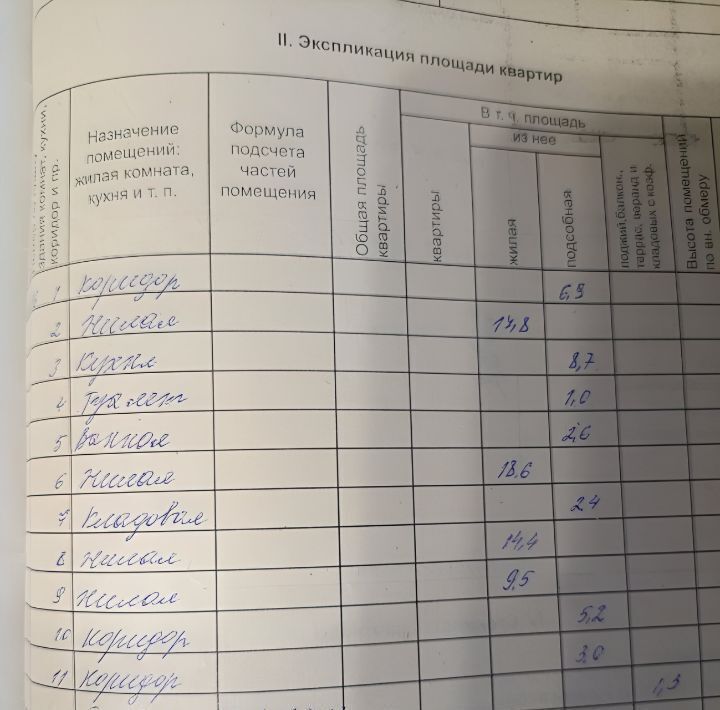 II. Экспликация площади квартир
здания комнат, кухни,
коридор и пр.
Назначение
помещений:
жилая комната,
кухня и т. п.
Формула
подсчета
частей
помещения
Общая площадь
квартиры
В т. ч. площадь
квартиры
из нее
жилая
подсобная
лоджий, балкон.,
террас, веранд и
кладовых с коэф.
Высота помещений
по вн. обмеру
1 Коридор 6,9
2 Жилая 14,8
3 Кухня 8,7
4 Туалет 1,0
5 Ванная 2,6
6 Жилая 18.6
7 Кладовая 2.4
8 Жилая 14,4
9 Жилая 9,5
10 Коридор 5,2
11 Коридор 3,0
1,3